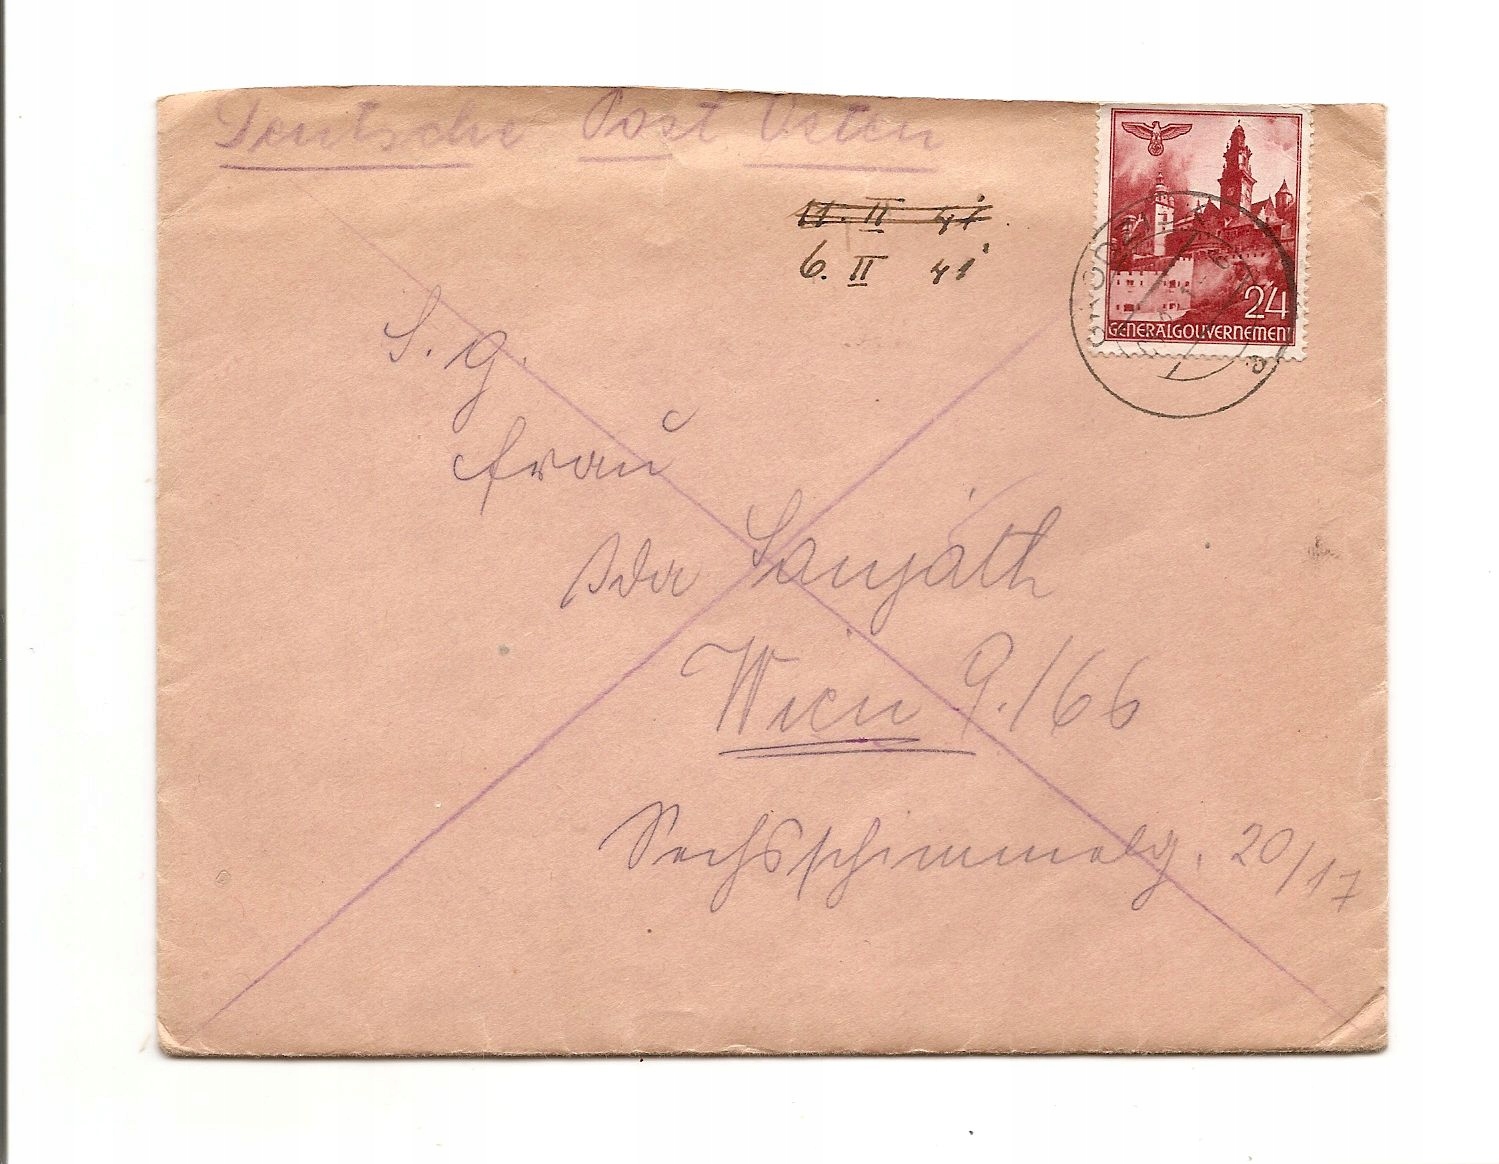 Deutsche Post Osten
11. II 41
6. II 41
24
GENERALGOUVERNEMENT
S. g.
Frau
Ida
Wien 9./66
Sechsschimmelg. 20/17